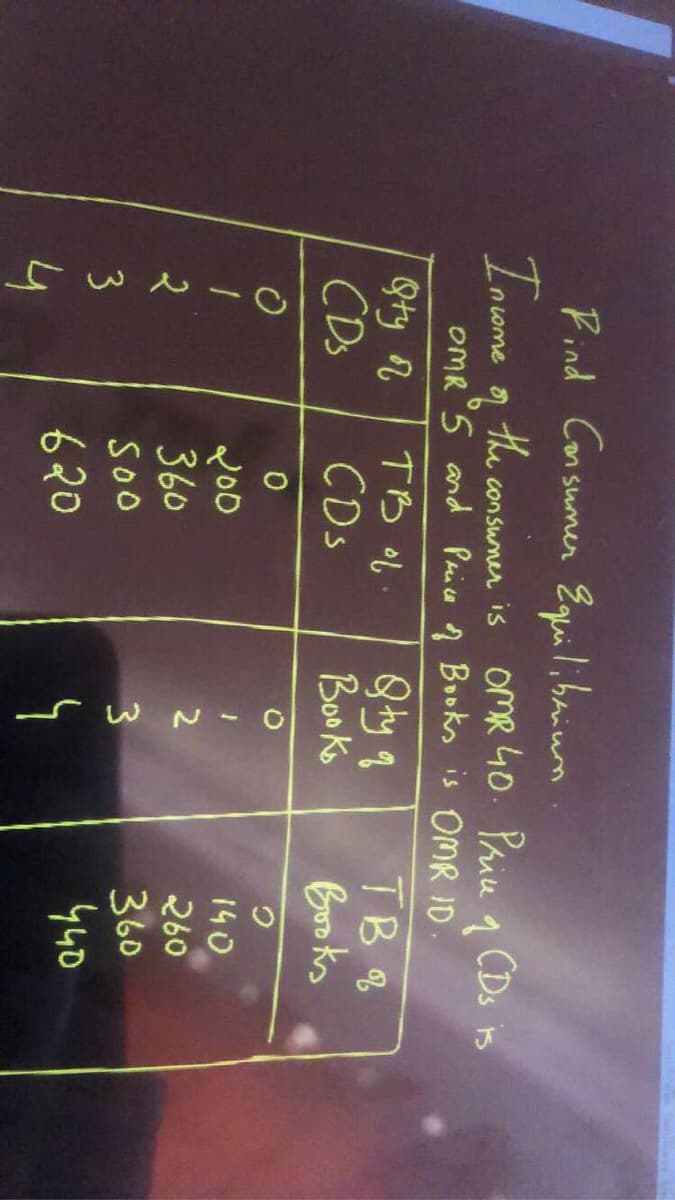 Find Consumer Equilibrium.
Income of the consumer is OMR 40. Price of CDs is
OMR 5 and Price of Books is OMR 10.
Qty of CDs | TB of CDs | Qty of Books | TB of Books
0 | 0 | 0 | 0
1 | 200 | 1 | 140
2 | 360 | 2 | 260
3 | 500 | 3 | 360
4 | 620 | 4 | 440